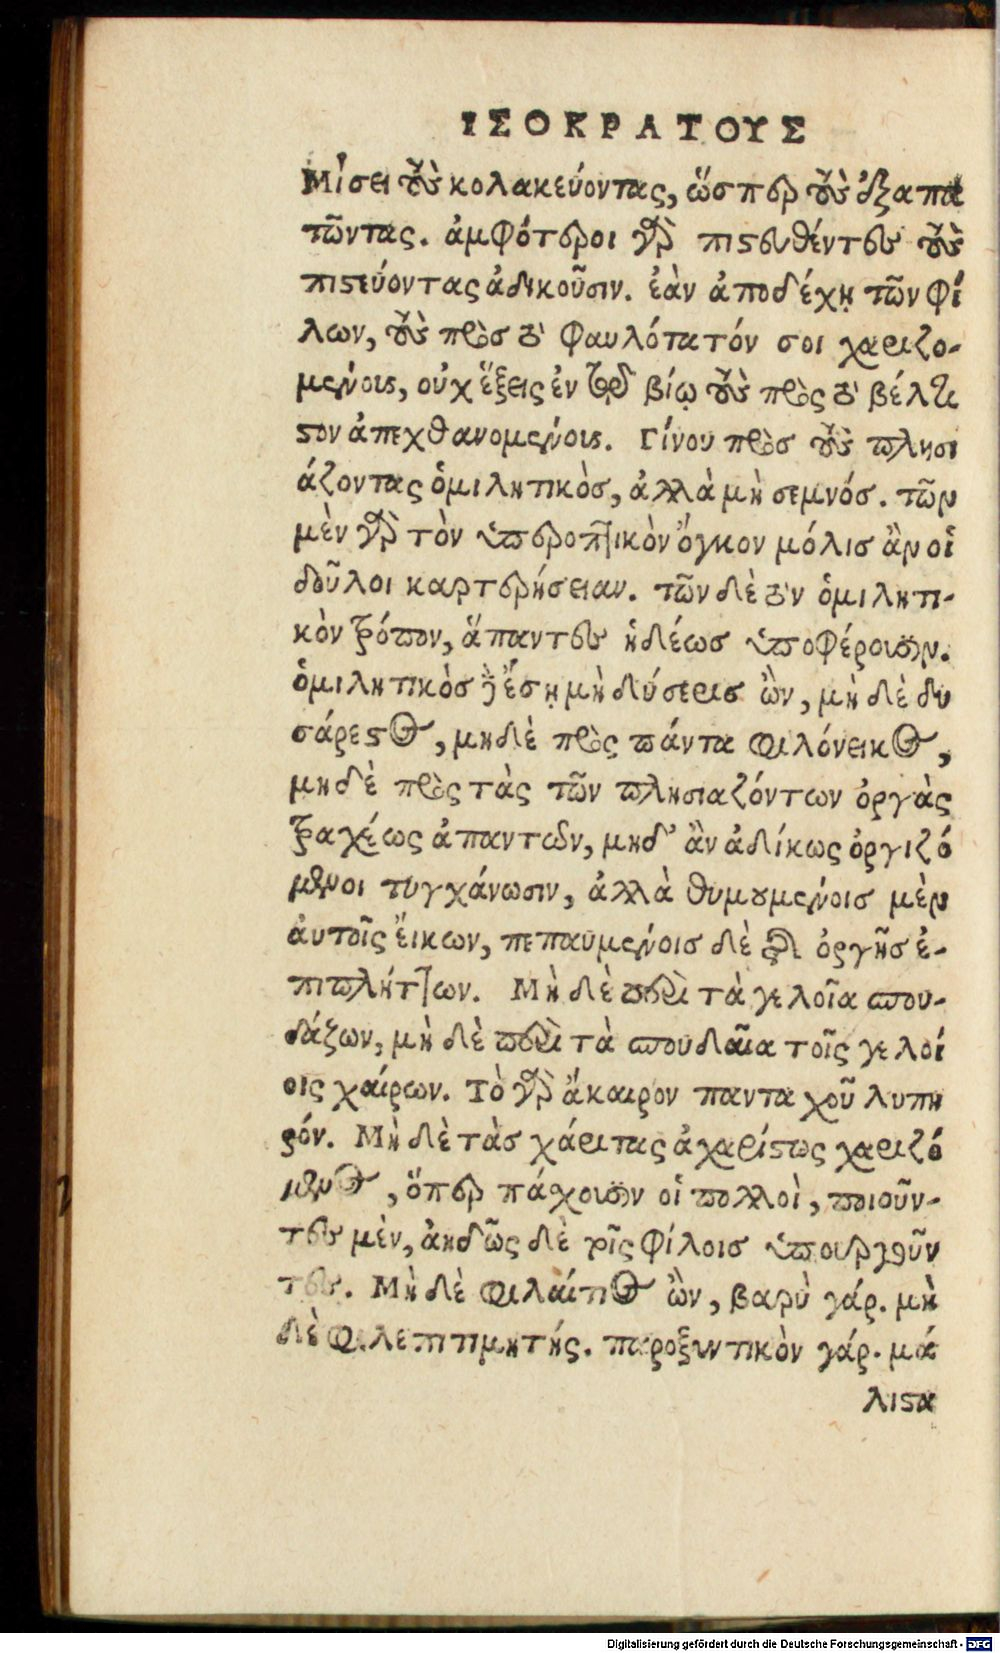 ΙΣΟΚΡΑΤΟΥΣ
Μίσει τοὺς κολακεύοντας, ὥσπερ τοὺς ἐξαπα
τῶντας. ἀμφότεροι γὰρ πιστευθέντες τοὺς
πιστεύοντας ἀδικοῦσιν. ἐὰν ἀποδέχῃ τῶν φί
λων, τοὺς πρὸς τὸ φαυλότατόν σοι χαριζο-
μένους, οὐχ ἕξεις ἐν τῷ βίῳ τοὺς πρὸς τὸ βέλτι
στον ἀπεχθανομένους. Γίνου πρὸς τοὺς πλησι
άζοντας ὁμιλητικὸς, ἀλλὰ μὴ σεμνός. τῶν
μὲν γὰρ τὸν ὑπεροπτικὸν ὄγκον μόλις ἂν οἱ
δοῦλοι καρτερήσειαν. τῶν δὲ τὸν ὁμιλητι-
κὸν τρόπον, ἅπαντες ἡδέως ὑποφέρουσιν.
ὁμιλητικὸς δ' ἔσῃ μὴ δύσερις ὢν, μὴ δὲ δυ
σάρεστος, μηδὲ πρὸς πάντα φιλόνεικος,
μηδὲ πρὸς τὰς τῶν πλησιαζόντων ὀργὰς
τραχέως ἀπαντῶν, μηδ' ἂν ἀδίκως ὀργιζό
μενοι τυγχάνωσιν, ἀλλὰ θυμουμένοις μὲν
ἀυτοῖς ἔικων, πεπαυμένοις δὲ τῆς ὀργῆς ἐ-
πιπλήττων. Μὴ δὲ παρὰ τὰ γελοῖα σπου-
δάζων, μὴ δὲ παρὰ τὰ σπουδαῖα τοῖς γελοί
οις χαίρων. Τὸ γὰρ ἄκαιρον πανταχοῦ λυπη
ρόν. Μὴ δὲ τὰς χάριτας ἀχαρίστως χαριζό
μενος, ὅπερ πάσχουσιν οἱ πολλοὶ, ποιοῦν-
τες μὲν, ἀηδῶς δὲ τοῖς φίλοις ὑπουργοῦν
τες. Μὴ δὲ φιλαίτιος ὢν, βαρὺ γάρ. μὴ
δὲ φιλεπιτιμητής. παροξυντικὸν γάρ. μά
λιστα
Digitalisierung gefördert durch die Deutsche Forschungsgemeinschaft - DFG